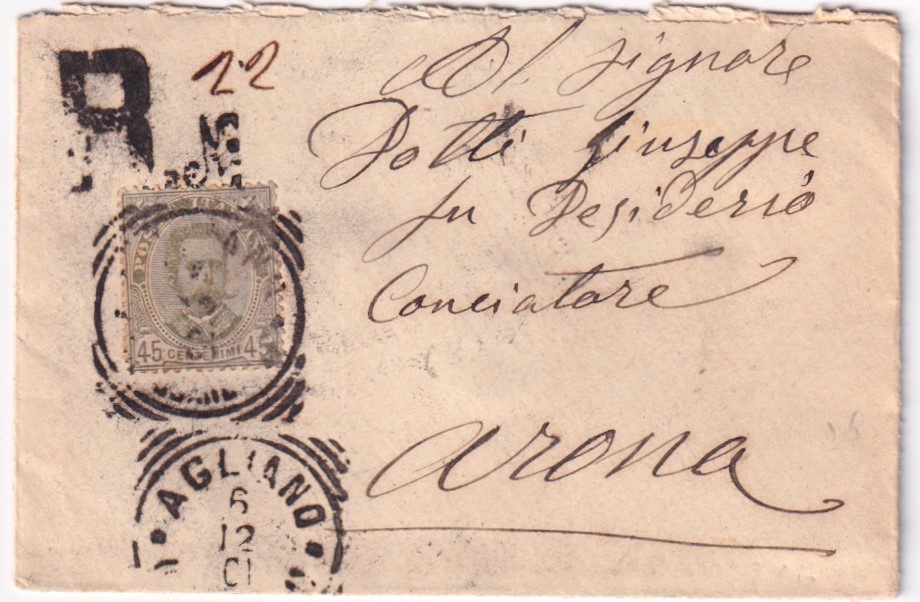 R
22
Al signore
Dotti Giuseppe
fu Desiderio
Conciatore
Arona
45 CENTESIMI 45
AGLIANO
6
12
01